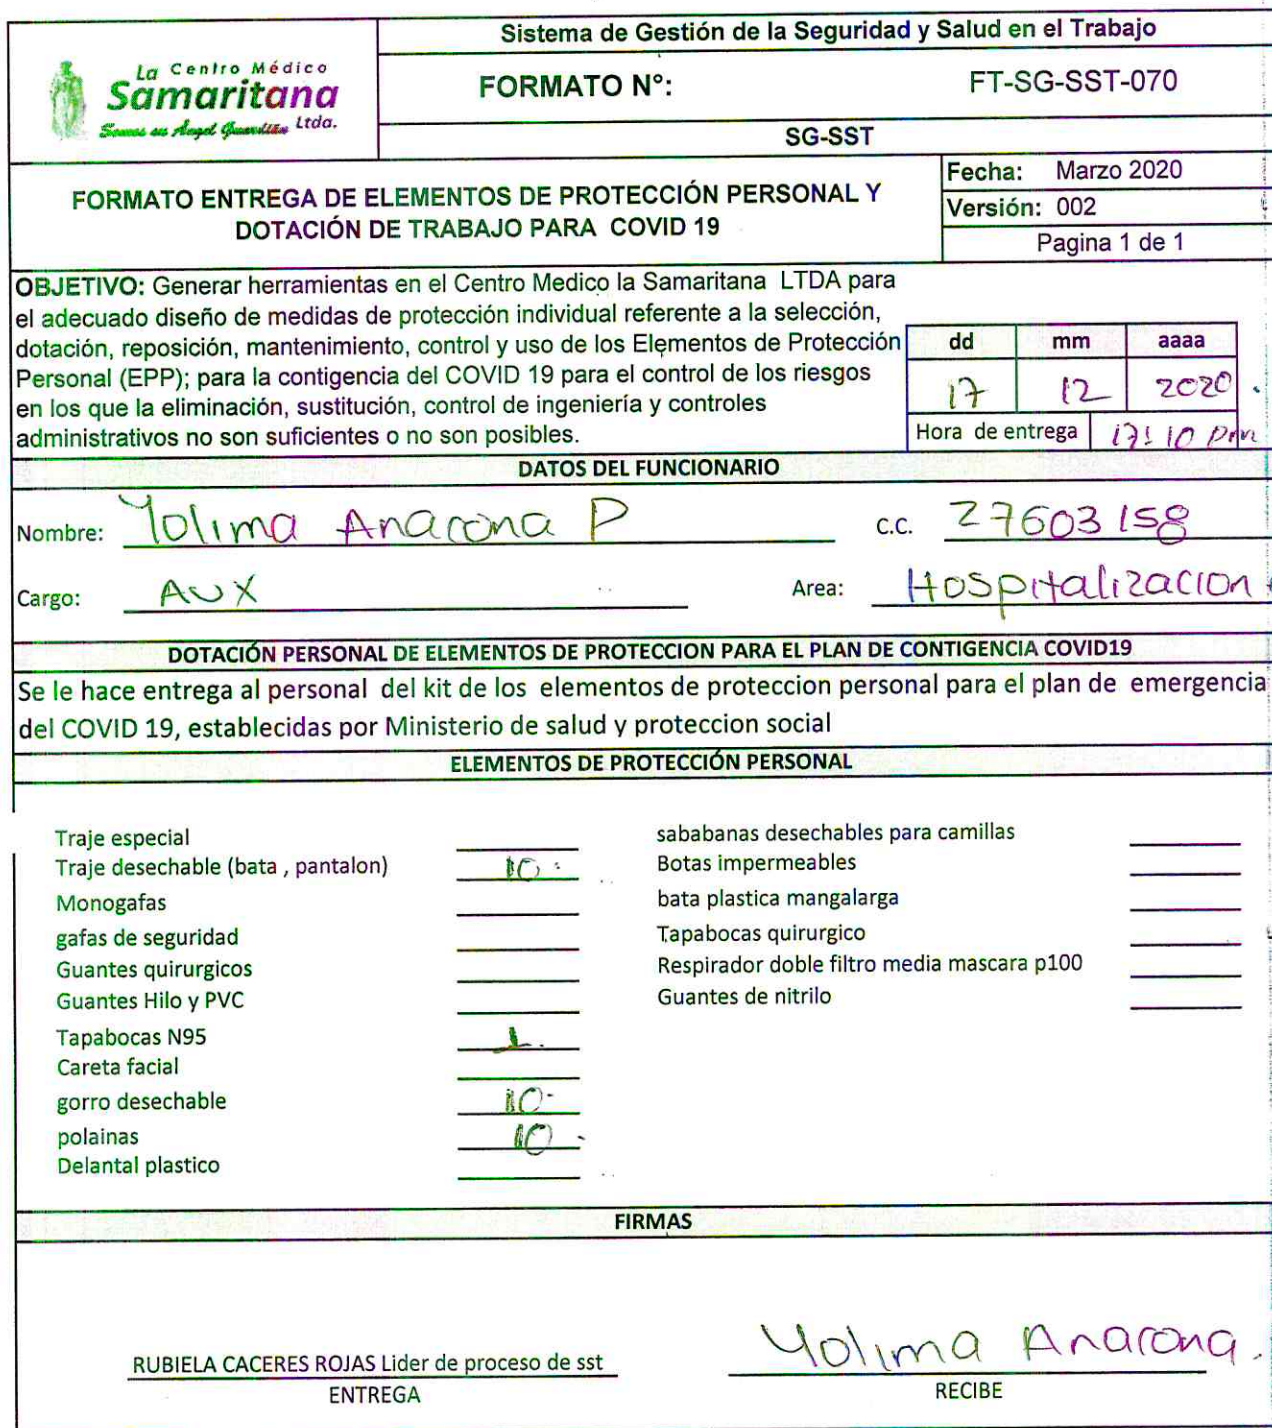 La Centro Médico
Samaritana
Somos su Angel Guardián Ltda.
Sistema de Gestión de la Seguridad y Salud en el Trabajo
FORMATO N°: FT-SG-SST-070
SG-SST
FORMATO ENTREGA DE ELEMENTOS DE PROTECCIÓN PERSONAL Y
DOTACIÓN DE TRABAJO PARA COVID 19
Fecha: Marzo 2020
Versión: 002
Pagina 1 de 1
OBJETIVO: Generar herramientas en el Centro Medico la Samaritana LTDA para
el adecuado diseño de medidas de protección individual referente a la selección,
dotación, reposición, mantenimiento, control y uso de los Elementos de Protección
Personal (EPP); para la contigencia del COVID 19 para el control de los riesgos
en los que la eliminación, sustitución, control de ingeniería y controles
administrativos no son suficientes o no son posibles.
dd mm aaaa
17 12 2020
Hora de entrega 17:10 pm
DATOS DEL FUNCIONARIO
Nombre: Yolima Anacona P C.C. 27603158
Cargo: AUX Area: Hospitalizacion
DOTACIÓN PERSONAL DE ELEMENTOS DE PROTECCION PARA EL PLAN DE CONTIGENCIA COVID19
Se le hace entrega al personal del kit de los elementos de proteccion personal para el plan de emergencia
del COVID 19, establecidas por Ministerio de salud y proteccion social
ELEMENTOS DE PROTECCIÓN PERSONAL
Traje especial
Traje desechable (bata , pantalon) 10
Monogafas
gafas de seguridad
Guantes quirurgicos
Guantes Hilo y PVC
Tapabocas N95 1
Careta facial
gorro desechable 10
polainas 10
Delantal plastico
sababanas desechables para camillas
Botas impermeables
bata plastica mangalarga
Tapabocas quirurgico
Respirador doble filtro media mascara p100
Guantes de nitrilo
FIRMAS
RUBIELA CACERES ROJAS Lider de proceso de sst
ENTREGA
Yolima Anacona.
RECIBE